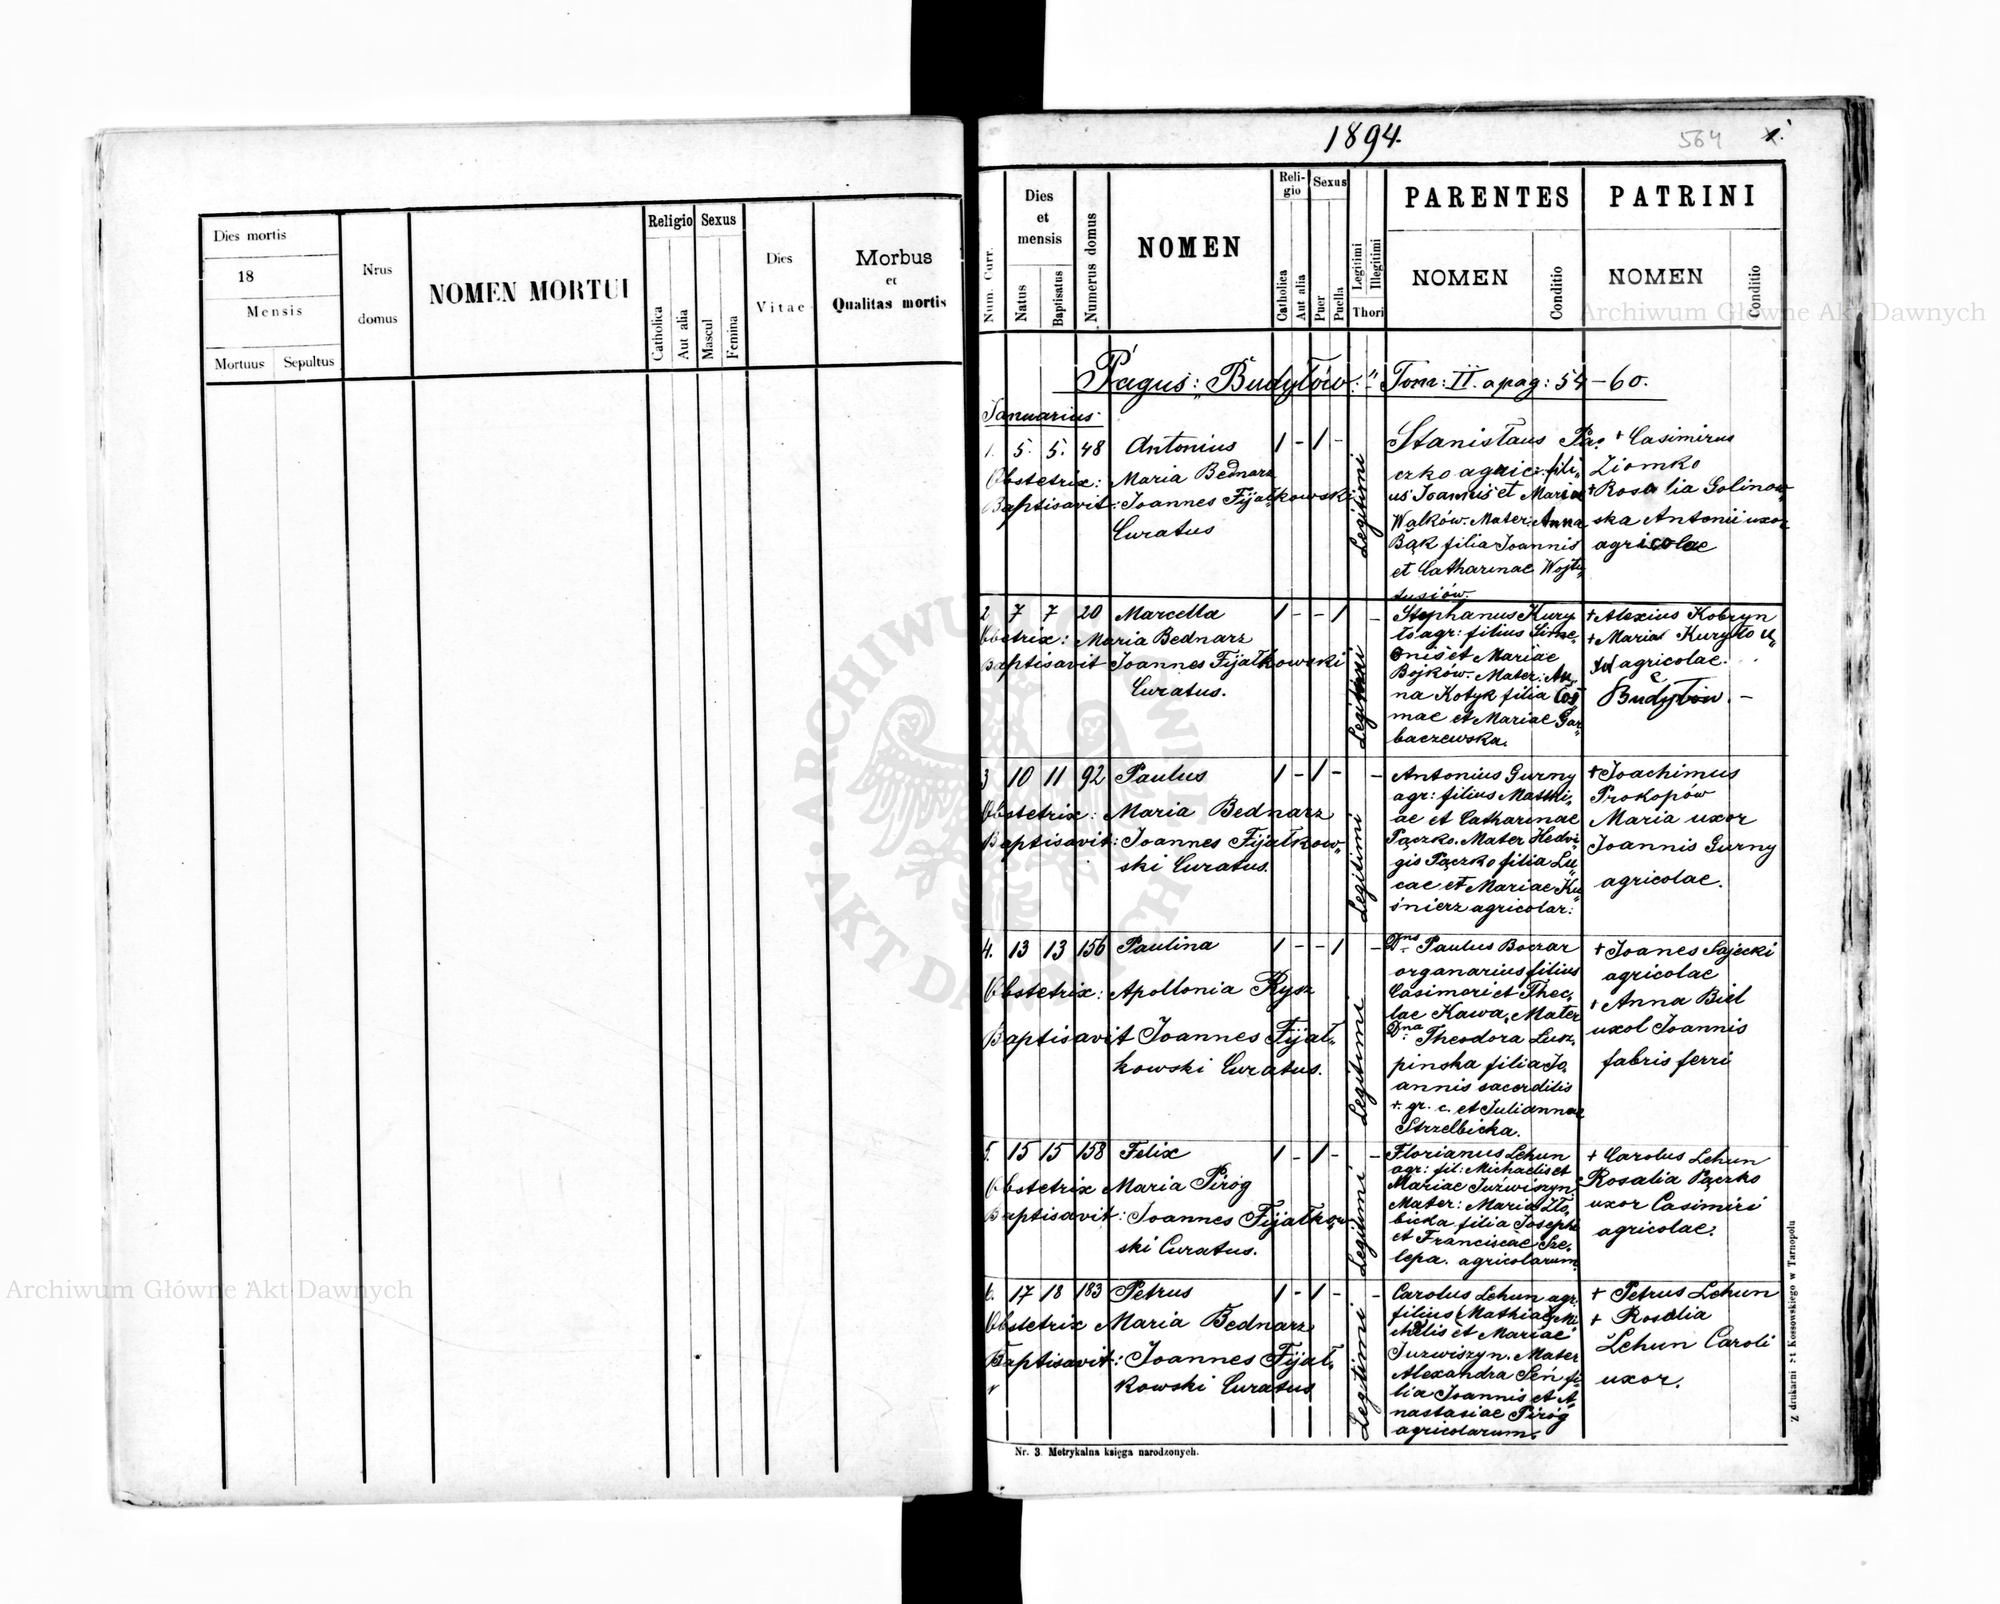 Dies mortis
18
Mensis
Mortuus
Sepultus
Nrus
domus
NOMEN MORTUI
Religio
Catholica
Aut alia
Sexus
Mascul
Femina
Dies
Vitae
Morbus
et
Qualitas mortis
1894.
564
1.
Num. Curr.
Dies
et
mensis
Natus
Baptisatus
Numerus domus
NOMEN
Reli-
gio
Catholica
Aut alia
Sexus
Puer
Puella
Legitimi
Illegitimi
Thori
PARENTES
NOMEN
Conditio
PATRINI
NOMEN
Conditio
Pagus: "Budyłów." Tom: II. a pag: 54-60.
Januarius
1. 5. 5. 48 Antonius 1 - 1 -
Obstetrix: Maria Bednarz
Baptisavit: Joannes Fijałkowski
Curatus
Legitimi
Stanislaus Pą-
czko agric: fili„
us Joannis et Maria
Wałków. Mater: Anna
Bąk filia Joannis
et Catharinae Wojty„
tusiów.
+ Casimirus
Ziomko
+ Rosalia Golinow„
ska Antonii uxor
agricolae
2 7 7 20 Marcella 1 - - 1 -
Obstetrix: Maria Bednarz
Baptisavit Joannes Fijałkowski
Curatus.
Legitimi
Stephanus Kury
ło agr: filius Sime„
onis et Mariae
Bojków. Mater: An„
na Kotyk filia Cos
mae et Mariae Gar„
baczewska.
+ Alexius Kobryn
+ Maria Kuryło u„
agricolae.
Budyłów. -
3 10 11 92 Paulus 1 - 1 - -
Obstetrix: Maria Bednarz
Baptisavit: Joannes Fijałkow„
ski Curatus.
Legitimi
Antonius Gurny
agr: filius Mathi„
ae et Catharinae
Pączko. Mater Hedvi„
gis Pączko filia Lu„
cae et Mariae Ku„
śnierz agricolar:
+ Joachimus
Prokopów
Maria uxor
Joannis Gurny
agricolae.
4. 13 13 156 Paulina 1 - - 1 -
Obstetrix: Apollonia Rysz
Baptisavit Joannes Fijał„
kowski Curatus.
Legitimi
Dns Paulus Boczar
organarius filius
Casimiri et Thec„
lae Kawa, Mater
Dna Theodora Lusz„
pinska filia Jo„
annis sacerditis
r. gr. c. et Juliannae
Strzelbicka.
+ Joanes Sajecki
agricolae
+ Anna Biel
uxol Joannis
fabris ferri
5. 15 15 158 Felix 1 - 1 - -
Obstetrix Maria Piróg
Baptisavit: Joannes Fijałkow„
ski Curatus.
Legitimi
Florianus Lehun
agr: fil: Michaelis et
Mariae Juźwiszyn
Mater: Maria Zło„
bicka filia Josephi
et Franciscae Sze„
lepa. agricolarum.
+ Carolus Lehun
Rosalia Pączko
uxor Casimiri
agricolae.
6. 17 18 183 Petrus 1 - 1 - -
Obstetrix Maria Bednarz
Baptisavit: Joannes Fijał„
kowski Curatus
Legitimi
Carolus Lehun agr.
filius (Mathiae) Mi
chaelis et Mariae
Juzwiszyn. Mater
Alexandra Seń fi„
lia Joannis et A„
nastasiae Piróg
agricolarum.
+ Petrus Lehun
+ Rosalia
Lehun Caroli
uxor.
Nr. 3. Metrykalna księga narodzonych.
Z drukarni St Kossowskiego w Tarnopolu
Archiwum Główne Akt Dawnych
Archiwum Główne Akt Dawnych
ARCHIWUM GŁÓWNE AKT DAWNYCH